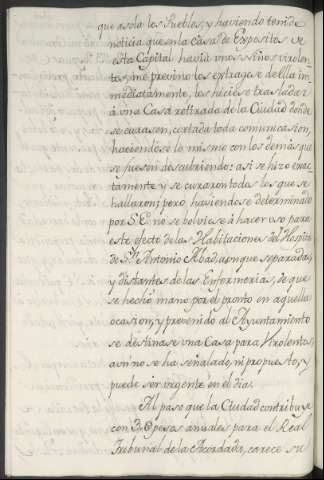 que asola los Pueblos, y haviendo tenido
noticia que en la Casa de Expositos de
esta Capital havia unos Niños virolen-
tos, me previno los extragese de ella in-
mediatamente, los hiciese trasladar
á una Casa retirada de la Ciudad donde
se curasen, cortada toda comunicacion,
haciendose lo mismo con los demas que
se fuesen descubriendo: asi se hizo exac-
tamente y se curaron todos los que se
hallaron; pero haviendose determinado
por S.E. no se bolviese á hacer uso para
este efecto de las Habitaciones del Hospital
de Sn. Antonio Abad, aunque separadas,
y distantes de las Enfermerias, de que
se hecho mano por el pronto en aquella
ocasion, y prevenido al Ayuntamiento
se destinase una Casa para Virolentos,
aun no se ha señalado, ni propuesto, y
puede ser urgente en el dia.
Al paso que la Ciudad contribuye
con pesos anuales para el Real
Tribunal de la Acordada, carece su